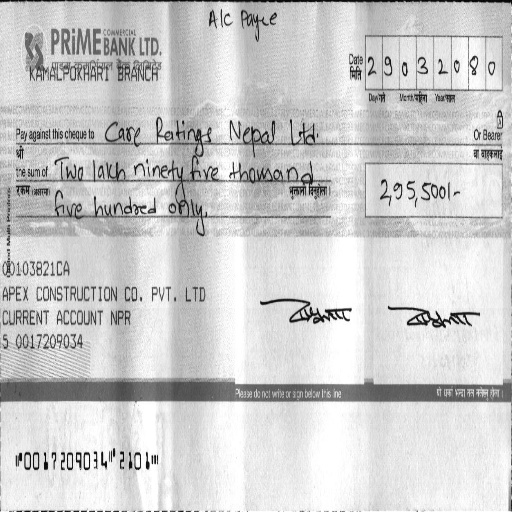 A/C Payee
PRIME COMMERCIAL BANK LTD.
प्राइम कमर्सियल बैंक लिमिटेड
KAMALPOKHARI BRANCH
Date
मिति
2 9 0 3 2 0 8 0
Day/गते Month/महिना Year/साल
Pay against this cheque to Care Ratings Nepal Ltd. Or Bearer
श्री वा वाहकलाई
the sum of Two lakh ninety five thousand
रकम (अक्षरमा) भुक्तानी दिनुहोला।
five hundred only.
2,95,500/-
00103821CA
APEX CONSTRUCTION CO. PVT. LTD
CURRENT ACCOUNT NPR
5 0017209034
Please do not write or sign below this line
⑈0017209034⑈2101⑈